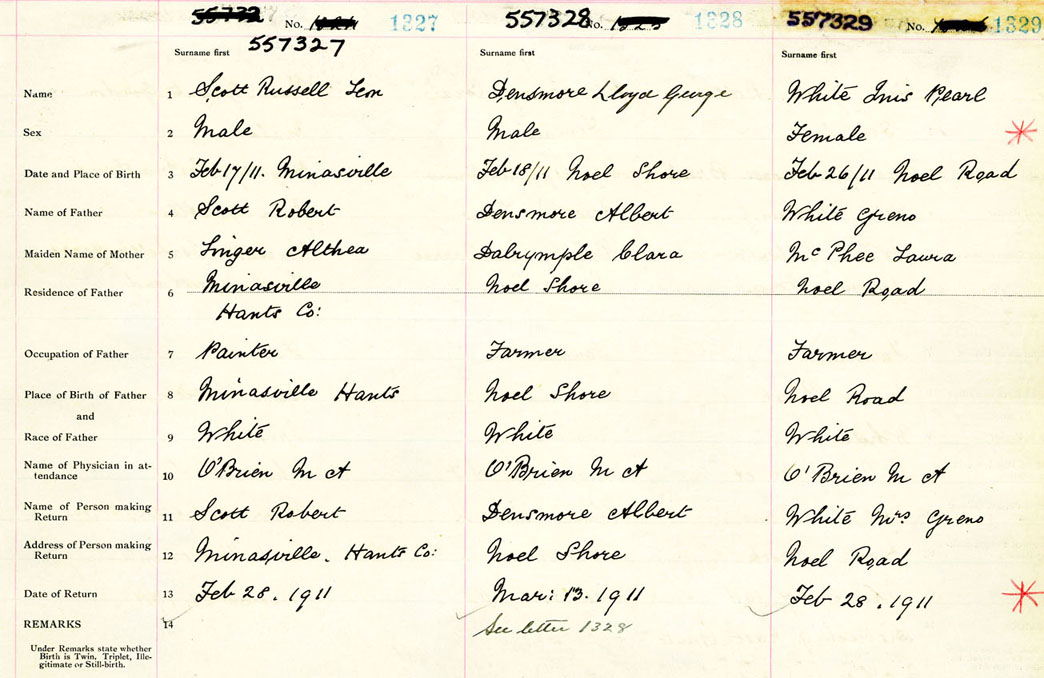 55732 No. 1327 557328 No. 1328 557329 No. 1329
557327
Surname first Surname first Surname first
Name 1 Scott Russell Leon Densmore Lloyd George White Inis Pearl
Sex 2 Male Male Female
Date and Place of Birth 3 Feb 17/11. Minasville Feb 18/11 Noel Shore Feb 26/11 Noel Road
Name of Father 4 Scott Robert Densmore Albert White Greno
Maiden Name of Mother 5 Singer Althea Dalrymple Clara McPhee Laura
Residence of Father 6 Minasville Noel Shore Noel Road
Hants Co:
Occupation of Father 7 Painter Farmer Farmer
Place of Birth of Father 8 Minasville Hants Noel Shore Noel Road
and
Race of Father 9 White White White
Name of Physician in at-
tendance 10 O'Brien M A O'Brien M A O'Brien M A
Name of Person making
Return 11 Scott Robert Densmore Albert White Mrs Greno
Address of Person making
Return 12 Minasville. Hants Co: Noel Shore Noel Road
Date of Return 13 Feb 28. 1911 Mar: 13. 1911 Feb 28. 1911
REMARKS 14 See letter 1328
Under Remarks state whether
Birth is Twin, Triplet, Ille-
gitimate or Still-birth.